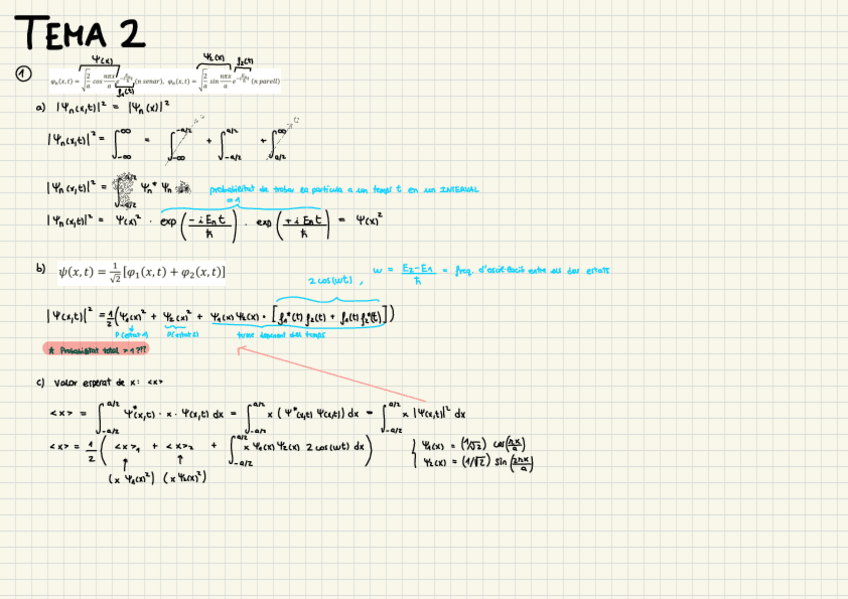 TEMA 2
ψ(x) ψ₂(x) f₂(t)
① φₙ(x,t) = √(2/a) cos (nπx/a) e^(-iEₙt/ħ) (n senar), φₙ(x,t) = √(2/a) sin (nπx/a) e^(-iEₙt/ħ) (n parell)
f₁(t)
a) |Ψₙ(x,t)|² = |Ψₙ(x)|²
|Ψₙ(x,t)|² = ∫_{-∞}^{∞} = ∫_{-∞}^{-a/2} + ∫_{-a/2}^{a/2} + ∫_{a/2}^{∞}
|Ψₙ(x,t)|² = Ψₙ* Ψₙ probabilitat de trobar la partícula a un temps t en un INTERVAL
= 1
|Ψₙ(x,t)|² = Ψ(x)² · exp(-i Eₙ t / ħ) · exp(+i Eₙ t / ħ) = Ψ(x)²
b) ψ(x,t) = 1/√2 [φ₁(x,t) + φ₂(x,t)]
2 cos(ωt), ω = (E₂-E₁)/ħ = freq. d'oscil·lació entre els dos estats
|Ψ(x,t)|² = 1/2 (Ψ₁(x)² + Ψ₂(x)² + Ψ₁(x) Ψ₂(x) · [f₁*(t) f₂(t) + f₁(t) f₂*(t)])
P(estat 1) P(estat 2) terme depenent del temps
* Probabilitat total > 1???
c) Valor esperat de x: <x>
<x> = ∫_{-a/2}^{a/2} Ψ*(x,t) · x · Ψ(x,t) dx = ∫_{-a/2}^{a/2} x (Ψ*(x,t) Ψ(x,t)) dx = ∫_{-a/2}^{a/2} x |Ψ(x,t)|² dx
<x> = 1/2 (<x>₁ + <x>₂ + ∫_{-a/2}^{a/2} x Ψ₁(x) Ψ₂(x) 2 cos(ωt) dx) { Ψ₁(x) = (1/√2) cos(πx/a)
Ψ₂(x) = (1/√2) sin(2πx/a)
(x Ψ₁(x)²) (x Ψ₂(x)²)